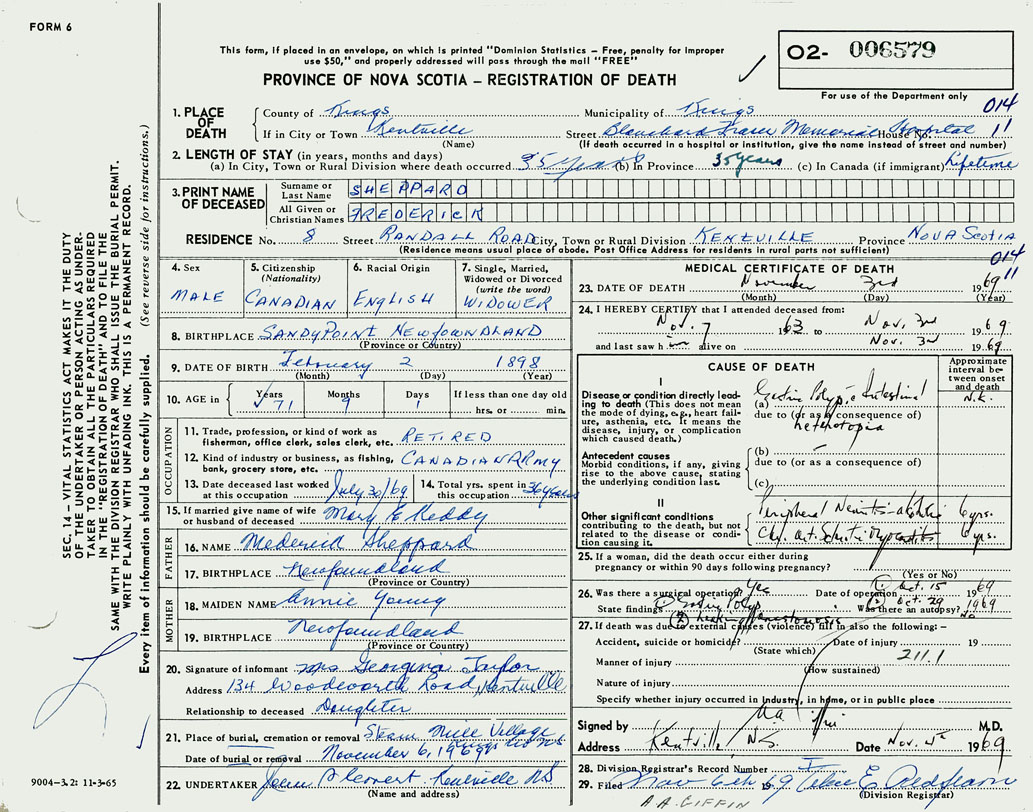 FORM 6
This form, if placed in an envelope, on which is printed "Dominion Statistics – Free, penalty for improper
use $50," and properly addressed will pass through the mail "FREE"
PROVINCE OF NOVA SCOTIA – REGISTRATION OF DEATH
O2- 006579
For use of the Department only
014
11
1. PLACE OF DEATH
County of Kings Municipality of Kings
If in City or Town Kentville Street Blanchard Fraser Memorial House No. Hospital
(Name) (If death occurred in a hospital or institution, give the name instead of street and number)
2. LENGTH OF STAY (in years, months and days)
(a) In City, Town or Rural Division where death occurred 35 years (b) In Province 35 years (c) In Canada (if immigrant) Lifetime
3. PRINT NAME OF DECEASED
Surname or Last Name SHEPPARD
All Given or Christian Names FREDERICK
RESIDENCE No. 8 Street RANDALL ROAD City, Town or Rural Division KENTVILLE Province NOVA SCOTIA
(Residence means usual place of abode. Post Office Address for residents in rural parts not sufficient)
014
11
4. Sex MALE
5. Citizenship (Nationality) CANADIAN
6. Racial Origin ENGLISH
7. Single, Married, Widowed or Divorced (write the word) WIDOWER
8. BIRTHPLACE SANDY POINT NEWFOWNDLAND
(Province or Country)
9. DATE OF BIRTH February 2 1898
(Month) (Day) (Year)
10. AGE in Years 71 Months 9 Days 1 If less than one day old
hrs. or min.
OCCUPATION
11. Trade, profession, or kind of work as fisherman, office clerk, sales clerk, etc. RETIRED
12. Kind of industry or business, as fishing, bank, grocery store, etc. CANADIAN ARMY
13. Date deceased last worked at this occupation July 30/69
14. Total yrs. spent in this occupation 36 years
15. If married give name of wife or husband of deceased Mary E Keddy
FATHER
16. NAME Mederick Sheppard
17. BIRTHPLACE Newfoundland
(Province or Country)
MOTHER
18. MAIDEN NAME Annie Young
19. BIRTHPLACE Newfoundland
(Province or Country)
20. Signature of informant Mrs Georgina Taylor
Address 134 Woodworth Road, Kentville
Relationship to deceased Daughter
21. Place of burial, cremation or removal Steam Mill Village
Kings Co N.S.
Date of burial or removal November 6, 1969
22. UNDERTAKER Kentville NS
(Name and address)
MEDICAL CERTIFICATE OF DEATH
23. DATE OF DEATH November 3rd 1969
(Month) (Day) (Year)
24. I HEREBY CERTIFY that I attended deceased from:
Nov. 7 1963 to Nov. 3rd 1969
and last saw him alive on Nov. 3rd 1969
CAUSE OF DEATH
Approximate interval between onset and death
I
Disease or condition directly leading to death (This does not mean the mode of dying, e.g., heart failure, asthenia, etc. It means the disease, injury, or complication which caused death.)
(a) Gastric Polyp Intestinal N.K.
due to (or as a consequence of)
heterotopia
Antecedent causes
Morbid conditions, if any, giving rise to the above cause, stating the underlying condition last.
(b)
due to (or as a consequence of)
(c)
II
Other significant conditions
contributing to the death, but not related to the disease or condition causing it.
Peripheral Neuritis 6 yrs.
6 yrs.
25. If a woman, did the death occur either during pregnancy or within 90 days following pregnancy?
(Yes or No)
26. Was there a surgical operation? Yes Date of operation (1) Oct. 15 1969
(2) Oct. 29 1969
State findings (1) Polyp Was there an autopsy? No
(2) leaking anastomosis
27. If death was due to external causes (violence) fill in also the following: –
Accident, suicide or homicide? Date of injury 19
(State which)
211.1
Manner of injury
(How sustained)
Nature of injury
Specify whether injury occurred in industry, in home, or in public place
Signed by M.D.
Address Kentville, N.S. Date Nov. 4th 1969
28. Division Registrar's Record Number
29. Filed Nov 6th 1969
(Division Registrar)
A.A. GIFFIN
SEC. 14 – VITAL STATISTICS ACT MAKES IT THE DUTY
OF THE UNDERTAKER OR PERSON ACTING AS UNDER-
TAKER TO OBTAIN ALL THE PARTICULARS REQUIRED
IN THE "REGISTRATION OF DEATH" AND TO FILE THE
SAME WITH THE DIVISION REGISTRAR WHO SHALL ISSUE THE BURIAL PERMIT.
WRITE PLAINLY WITH UNFADING INK. THIS IS A PERMANENT RECORD.
Every item of information should be carefully supplied. (See reverse side for instructions.)
9004–3.2: 11-3-65